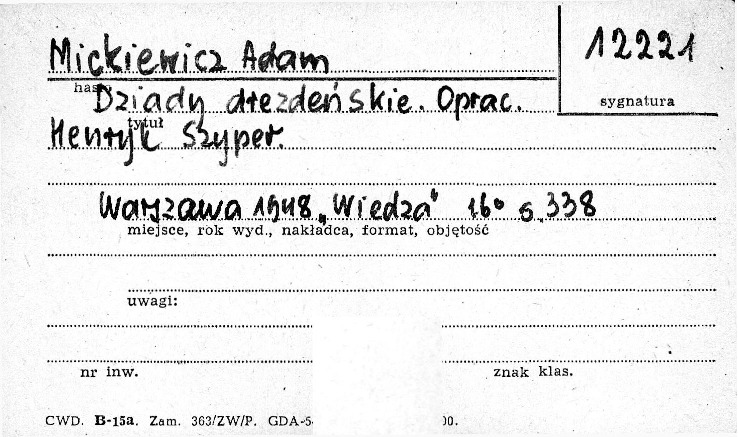 Mickiewicz Adam
12221
hasło
sygnatura
Dziady drezdeńskie. Oprac.
tytuł
Henryk Szyper.
Warszawa 1948 „Wiedza" 16° s. 338
miejsce, rok wyd., nakładca, format, objętość
uwagi:
nr inw.
znak klas.
CWD. B-15a. Zam. 363/ZW/P. GDA-5
00.